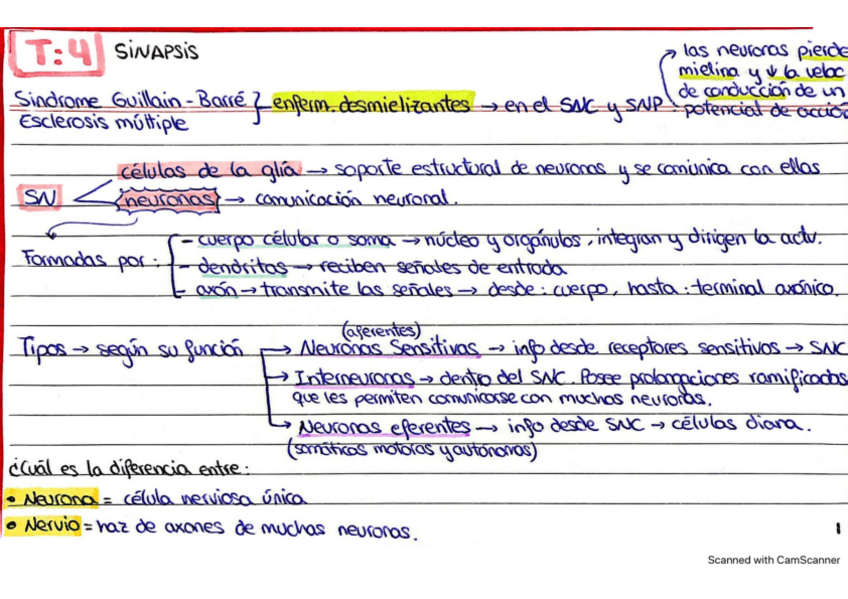 T:4 SINAPSIS
las neuronas pierde
mielina y ↓ la veloc
de conducción de un
potencial de acción
Síndrome Guillain-Barré } enferm. desmielizantes → en el SNC y SNP
Esclerosis múltiple
células de la glía → soporte estructural de neuronas y se comunica con ellas
SN
neuronas → comunicación neuronal.
Formadas por:
- cuerpo célular o soma → núcleo y orgánulos, integran y dirigen la actv.
- dendritas → reciben señales de entrada
- axón → transmite las señales → desde: cuerpo, hasta: terminal axónico.
(aferentes)
Tipos → según su función → Neuronas Sensitivas → info desde receptores sensitivos → SNC
→ Interneuronas → dentro del SNC. Posee prolongaciones ramificadas
que les permiten comunicarse con muchas neuronas.
→ Neuronas eferentes → info desde SNC → células diana.
(somáticas motoras y autónomas)
¿Cuál es la diferencia entre:
• Neurona = célula nerviosa única
• Nervio = haz de axones de muchas neuronas.
1
Scanned with CamScanner